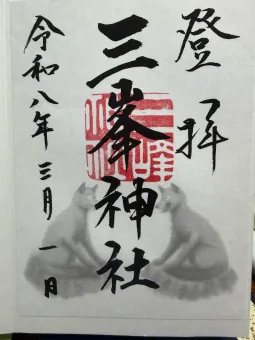 登拝
三峯神社
令和八年三月一日